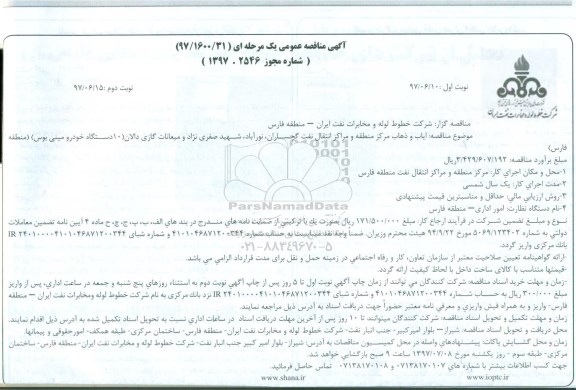 آگهی مناقصه عمومی یک مرحله ای (۹۷/۱۶۰۰/۳۱)
( شماره مجوز ۲۵۴۶ . ۱۳۹۷ )
نوبت اول :۹۷/۰۶/۱۰
نوبت دوم :۹۷/۰۶/۱۵
مناقصه گزار: شرکت خطوط لوله و مخابرات نفت ایران – منطقه فارس
موضوع مناقصه: ایاب و ذهاب مرکز منطقه و مراکز انتقال نفت گچساران،نورآباد، شهید صفری نژاد و میعانات گازی دالان(۱۰دستگاه خودرو مینی بوس) (منطقه
فارس)
مبلغ برآورد مناقصه: ۳/۴۲۹/۶۰۷/۱۹۲ریال
۱-محل و مکان اجرای کار: مرکز منطقه و مراکز انتقال نفت منطقه فارس
۲-مدت اجرای کار: یک سال شمسی
۳-روش ارزیابی مالی: حداقل و مناسبترین قیمت پیشنهادی
۴-نام دستگاه نظارت: امور اداری– منطقه فارس
نوع و مبلغ تضمین شرکت در فرآیند ارجاع کار: مبلغ ۱۷۱/۵۰۰/۰۰۰ ریال بصورت یک یا ترکیبی از ضمانت نامه های مندرج در بند های الف، ب، پ، ج، چ، ح ماده ۴ آیین نامه تضمین معاملات
دولتی به شماره ۱۲۳۴۰۲/ت۵۰۶۵۹ه مورخ ۹۴/۹/۲۲ هیئت محترم وزیران. ضمناً واجه نقد میبایست به حساب شماره ۴۱۰۱۰۴۶۸۷۱۲۰۰۳۴۴ و شماره شبای IR ۲۴۰۱۰۰۰۰۴۱۰۱۰۴۶۸۷۱۲۰۰۳۴۴
بانک مرکزی واریز گردد.
-ارائه گواهینامه تعیین صلاحیت معتبر از سازمان تعاون، کار و رفاه اجتماعی در زمینه حمل و نقل برای مدت قرارداد الزامی می باشد.
-قیمتها متناسب با کالای ساخت داخل با لحاظ کیفیت ارائه گردد.
-زمان و مهلت خرید اسناد مناقصه: شرکت کنندگان می توانند از زمان چاپ آگهی نوبت اول تا ۵ روز پس از چاپ آگهی نوبت دوم به استثناء روزهای پنج شنبه و جمعه در ساعت اداری، پس از واریز
مبلغ ۳۰۰/۰۰۰ ریال به حساب شماره ۴۱۰۱۰۴۶۸۷۱۲۰۰۳۴۴ و شماره شبای IR ۲۴۰۱۰۰۰۰۴۱۰۱۰۴۶۸۷۱۲۰۰۳۴۴ نزد بانک مرکزی به نام شرکت خطوط لوله ومخابرات نفت ایران – منطقه
فارس واریز و به همراه فیش واریزی و معرفی نامه معتبر حضوراً جهت دریافت اسناد به آدرس ذیل مراجعه نمایند.
زمان و مهلت تکمیل و تحویل اسناد مناقصه: شرکت کنندگان میتوانند تا ۱۰ روز پس از آخرین مهلت دریافت اسناد در ساعات اداری نسبت به تحویل اسناد تکمیل شده به آدرس ذیل اقدام نمایند.
محل دریافت و تحویل اسناد مناقصه: شیراز– بلوار امیرکبیر– جنب انبار نفت– شرکت خطوط لوله و مخابرات نفت ایران– منطقه فارس– ساختمان مرکزی– طبقه همکف– امورحقوقی و پیمانها.
زمان و محل گشایش پاکات: پیشنهادهای واصله در محل کمیسیون مناقصات به آدرس: شیراز– بلوار امیر کبیر جنب انبار نفت– شرکت خطوط لوله و مخابرات نفت ایران– منطقه فارس– ساختمان
مرکزی– طبقه سوم – روز یکشنبه مورخ ۱۳۹۷/۰۷/۰۸ ساعت ۹ صبح بازگشایی خواهد شد.
جهت کسب اطلاعات بیشتر با شماره های ۰۷۱۳۸۱۷۰۱۰۷ و ۰۷۱۳۸۱۷۰۱۰۸ تماس حاصل فرمائید.
www.shana.ir
www.ioptc.ir
ParsNamadData
۰۲۱-۸۸۳۴۹۶۷۰-۵